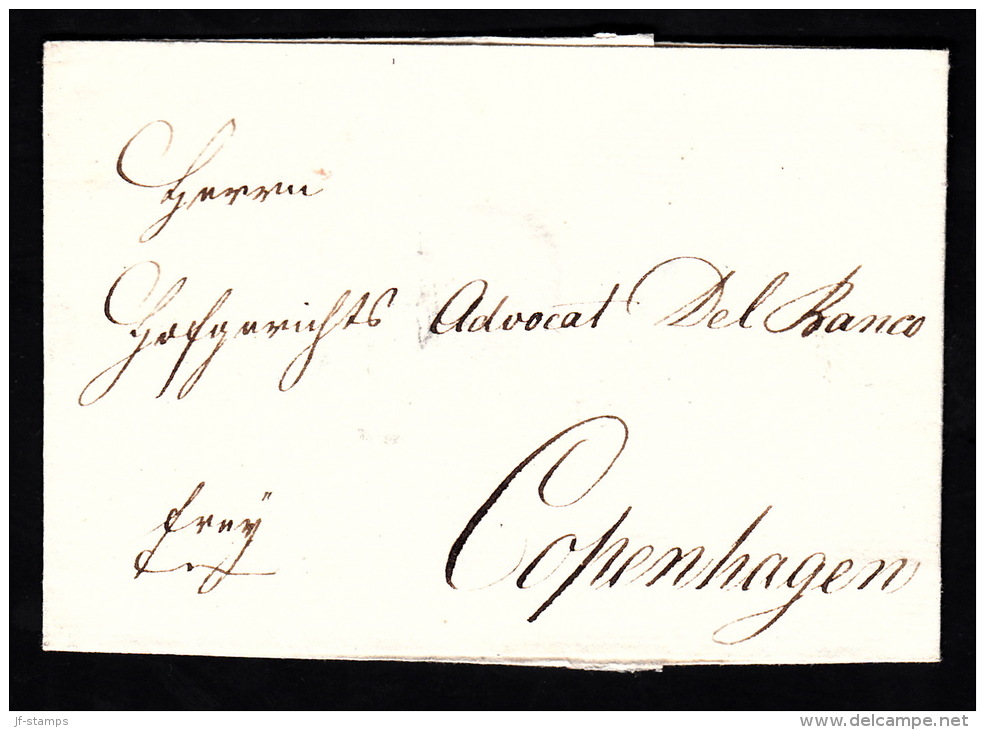 Herrn
Hofgerichts Advocat Del Banco
freÿ
Copenhagen
jf-stamps
www.delcampe.net